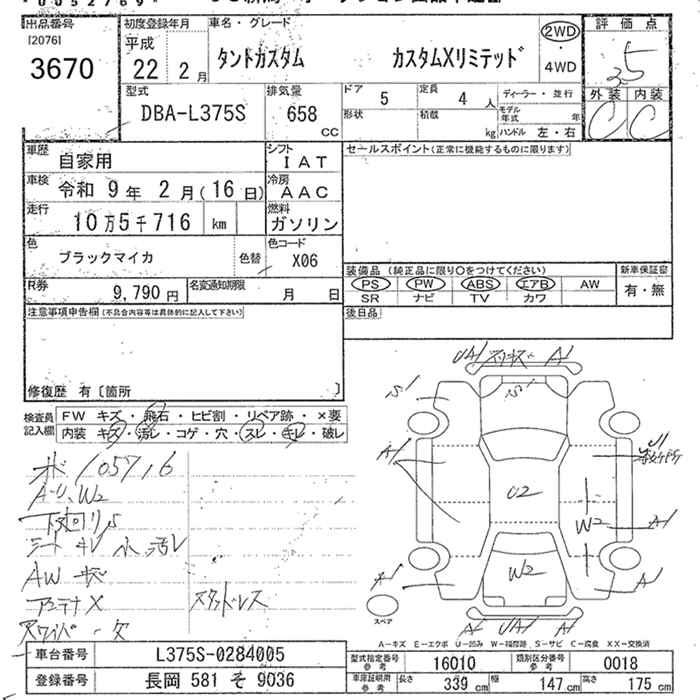 出品番号
[2076]
3670
初度登録年月
平成
22 2月
車名・グレード
タントカスタム カスタムXリミテッド
2WD
・
4WD
評価点
3.5
外装 内装
C C
型式
DBA-L375S
排気量
658
CC
ドア
5
定員
4 人
形状
積載
kg
ディーラー・並行
モデル年式 年
ハンドル 左・右
車歴
自家用
シフト
IAT
車検
令和 9年 2月(16日)
冷房
AAC
走行
10万5千716 km
燃料
ガソリン
色
ブラックマイカ
色替
色コード
X06
R券
9,790 円
名変通知期限
月 日
セールスポイント(正常に機能するものに限ります)
装備品 (純正品に限り○をつけてください)
PS PW ABS エアB AW
SR ナビ TV カワ
新車保証書
有・無
後日品
注意事項申告欄(不具合内容等は具体的に記入して下さい)
修復歴 有〔箇所 〕
検査員
記入欄
FW キズ・飛石・ヒビ割・リペア跡・×要
内装 キズ・汚レ・コゲ・穴・スレ・キレ・破レ
105716
A-U、W2
下廻りS
シート 汚レ
AW
アンテナX
スタッドレス
スワイパー欠
UA1 A1
S1 S1
A1 U1
U2
W2 A1
W2
A1 A1
スペア
A1 UA1 A1
A－キズ E－エクボ U－凹み W－補修跡 S－サビ C－腐食 XX－交換済
車台番号
L375S-0284005
登録番号
長岡 581 そ 9036
型式指定番号
参考
16010
類別区分番号
参考
0018
車庫証明用
参考
長さ
339 cm
幅
147 cm
高さ
175 cm